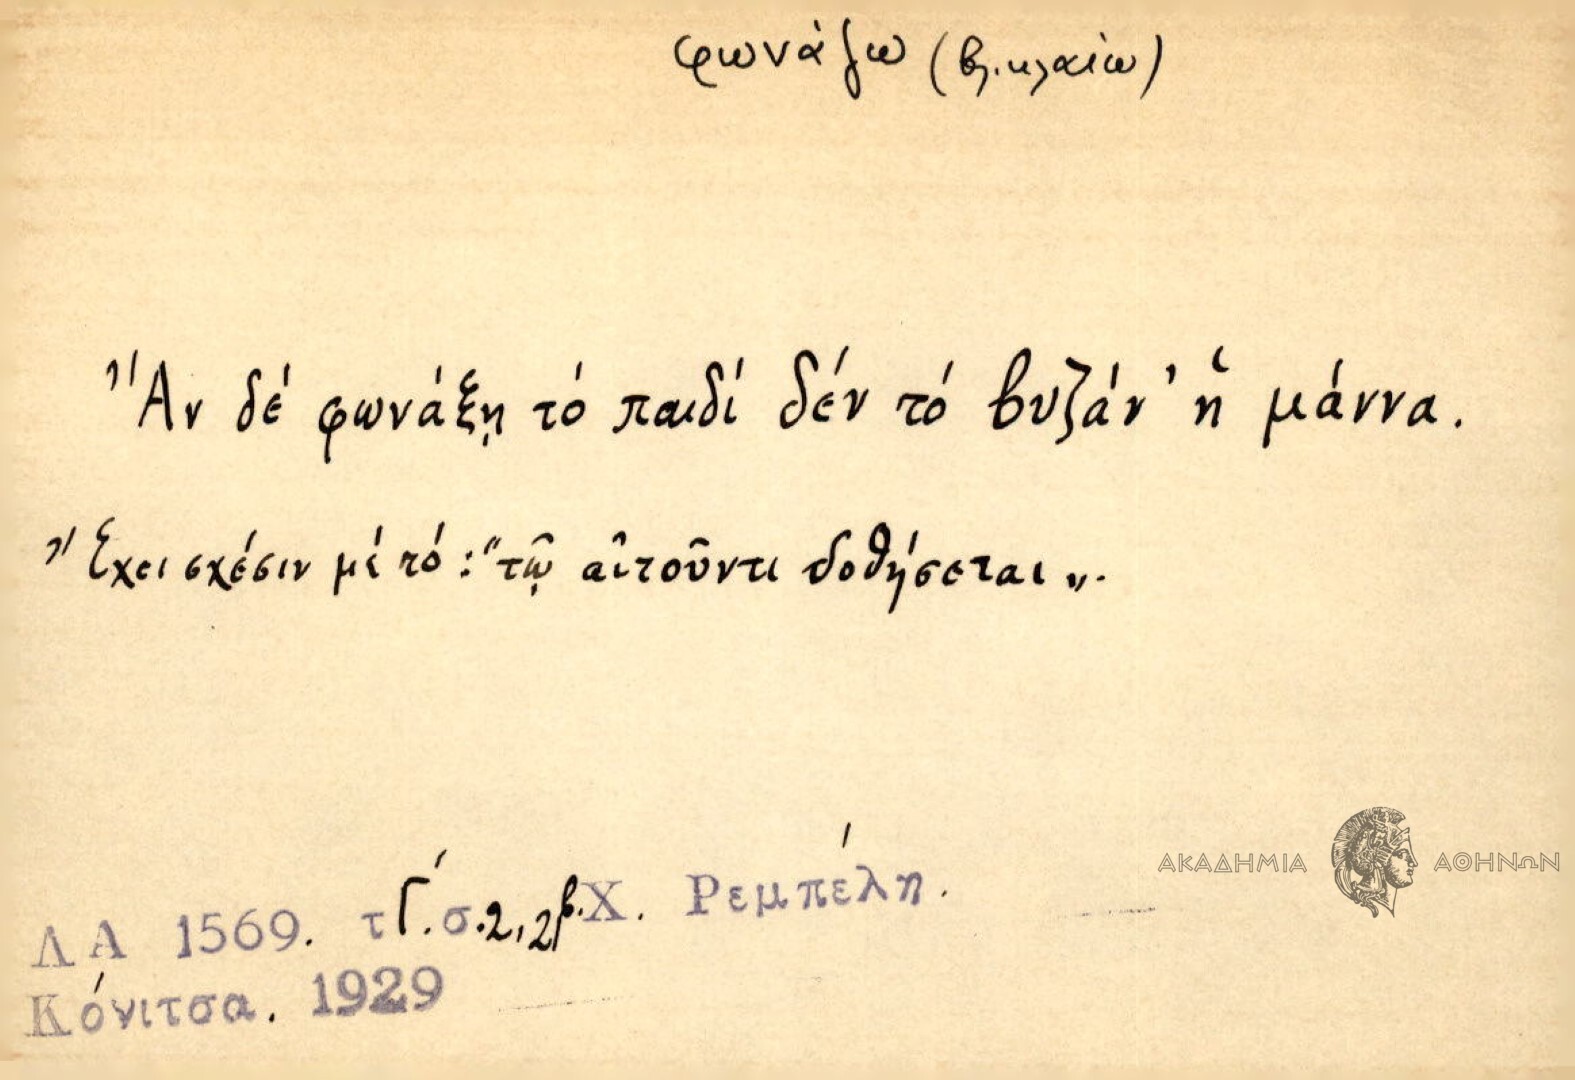 φωνάζω (βλ. κλαίω)
Ἂν δέ φωνάξῃ τό παιδί δέν τό βυζάν' ἡ μάννα.
Ἔχει σχέσιν μέ τό: "τῷ αἰτοῦντι δοθήσεται".
ΑΚΑΔΗΜΙΑ ΑΘΗΝΩΝ
ΛΑ 1569. τ Γ'. σ. 2, 2β. Χ. Ρεμπέλη.
Κόνιτσα. 1929